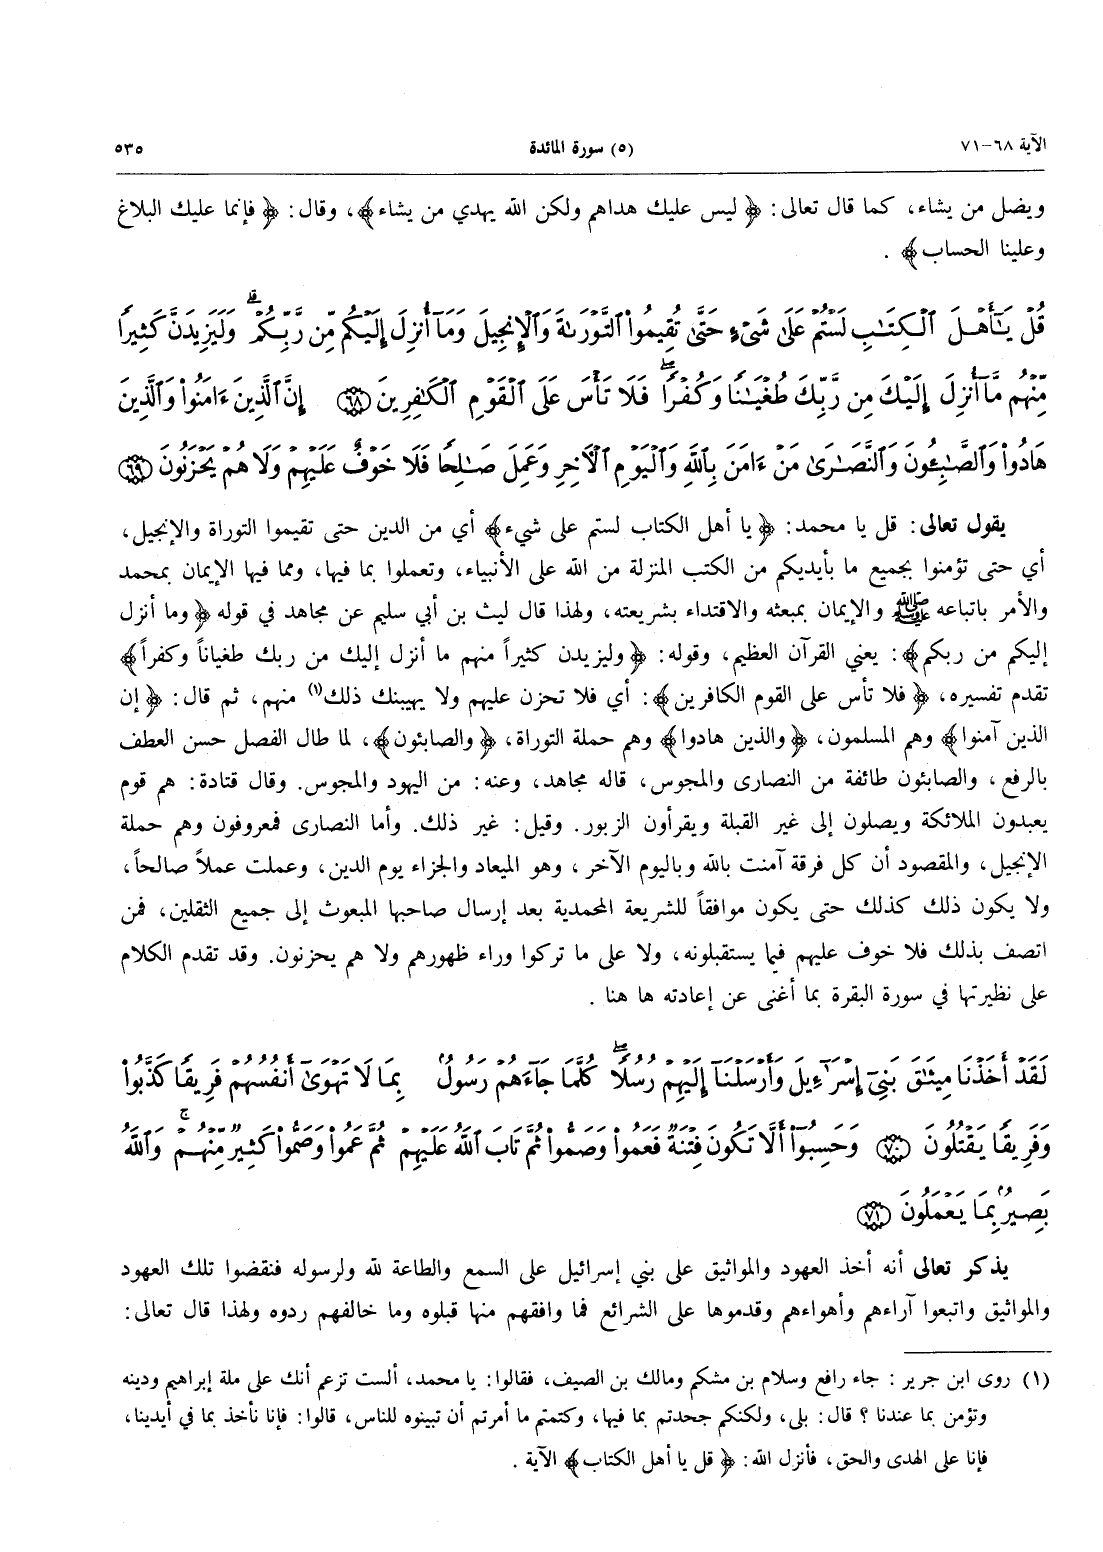 الآية ٦٨-٧١ (٥) سورة المائدة ٥٣٥
ويضل من يشاء، كما قال تعالى: ﴿ ليس عليك هداهم ولكن الله يهدي من يشاء ﴾، وقال: ﴿ فإنما عليك البلاغ
وعلينا الحساب ﴾ .
قُلْ يَـٰٓأَهْلَ ٱلْكِتَـٰبِ لَسْتُمْ عَلَىٰ شَىْءٍ حَتَّىٰ تُقِيمُوا۟ ٱلتَّوْرَىٰةَ وَٱلْإِنجِيلَ وَمَآ أُنزِلَ إِلَيْكُم مِّن رَّبِّكُمْ ۗ وَلَيَزِيدَنَّ كَثِيرًا
مِّنْهُم مَّآ أُنزِلَ إِلَيْكَ مِن رَّبِّكَ طُغْيَـٰنًا وَكُفْرًا ۖ فَلَا تَأْسَ عَلَى ٱلْقَوْمِ ٱلْكَـٰفِرِينَ ﴿٦٨﴾ إِنَّ ٱلَّذِينَ ءَامَنُوا۟ وَٱلَّذِينَ
هَادُوا۟ وَٱلصَّـٰبِـُٔونَ وَٱلنَّصَـٰرَىٰ مَنْ ءَامَنَ بِٱللَّهِ وَٱلْيَوْمِ ٱلْـَٔاخِرِ وَعَمِلَ صَـٰلِحًا فَلَا خَوْفٌ عَلَيْهِمْ وَلَا هُمْ يَحْزَنُونَ ﴿٦٩﴾
يقول تعالى: قل يا محمد: ﴿ يا أهل الكتاب لستم على شيء ﴾ أي من الدين حتى تقيموا التوراة والإنجيل،
أي حتى تؤمنوا بجميع ما بأيديكم من الكتب المنزلة من الله على الأنبياء، وتعملوا بما فيها، ومما فيها الإيمان بمحمد
والأمر باتباعه ﷺ والإيمان بمبعثه والاقتداء بشريعته، ولهذا قال ليث بن أبي سليم عن مجاهد في قوله ﴿ وما أنزل
إليكم من ربكم ﴾: يعني القرآن العظيم، وقوله: ﴿ وليزيدن كثيراً منهم ما أنزل إليك من ربك طغياناً وكفراً ﴾
تقدم تفسيره، ﴿ فلا تأس على القوم الكافرين ﴾: أي فلا تحزن عليهم ولا يهيبنك ذلك(١) منهم، ثم قال: ﴿ إن
الذين آمنوا ﴾ وهم المسلمون، ﴿ والذين هادوا ﴾ وهم حملة التوراة، ﴿ والصابئون ﴾، لما طال الفصل حسن العطف
بالرفع، والصابئون طائفة من النصارى والمجوس، قاله مجاهد، وعنه: من اليهود والمجوس. وقال قتادة: هم قوم
يعبدون الملائكة ويصلون إلى غير القبلة ويقرأون الزبور. وقيل: غير ذلك. وأما النصارى فمعروفون وهم حملة
الإنجيل، والمقصود أن كل فرقة آمنت بالله وباليوم الآخر، وهو الميعاد والجزاء يوم الدين، وعملت عملاً صالحاً،
ولا يكون ذلك كذلك حتى يكون موافقاً للشريعة المحمدية بعد إرسال صاحبها المبعوث إلى جميع الثقلين، فمن
اتصف بذلك فلا خوف عليهم فيما يستقبلونه، ولا على ما تركوا وراء ظهورهم ولا هم يحزنون. وقد تقدم الكلام
على نظيرتها في سورة البقرة بما أغنى عن إعادته ها هنا .
لَقَدْ أَخَذْنَا مِيثَـٰقَ بَنِىٓ إِسْرَٰٓءِيلَ وَأَرْسَلْنَآ إِلَيْهِمْ رُسُلًا ۖ كُلَّمَا جَآءَهُمْ رَسُولٌۢ بِمَا لَا تَهْوَىٰٓ أَنفُسُهُمْ فَرِيقًا كَذَّبُوا۟
وَفَرِيقًا يَقْتُلُونَ ﴿٧٠﴾ وَحَسِبُوٓا۟ أَلَّا تَكُونَ فِتْنَةٌ فَعَمُوا۟ وَصَمُّوا۟ ثُمَّ تَابَ ٱللَّهُ عَلَيْهِمْ ثُمَّ عَمُوا۟ وَصَمُّوا۟ كَثِيرٌ مِّنْهُمْ ۚ وَٱللَّهُ
بَصِيرٌۢ بِمَا يَعْمَلُونَ ﴿٧١﴾
يذكر تعالى أنه أخذ العهود والمواثيق على بني إسرائيل على السمع والطاعة لله ولرسوله فنقضوا تلك العهود
والمواثيق واتبعوا آراءهم وأهواءهم وقدموها على الشرائع فما وافقهم منها قبلوه وما خالفهم ردوه ولهذا قال تعالى:
(١) روى ابن جرير: جاء رافع وسلام بن مشكم ومالك بن الصيف، فقالوا: يا محمد، ألست تزعم أنك على ملة إبراهيم ودينه
وتؤمن بما عندنا ؟ قال: بلى، ولكنكم جحدتم بما فيها، وكتمتم ما أمرتم أن تبينوه للناس، قالوا: فإنا نأخذ بما في أيدينا،
فإنا على الهدى والحق، فأنزل الله: ﴿ قل يا أهل الكتاب ﴾ الآية .